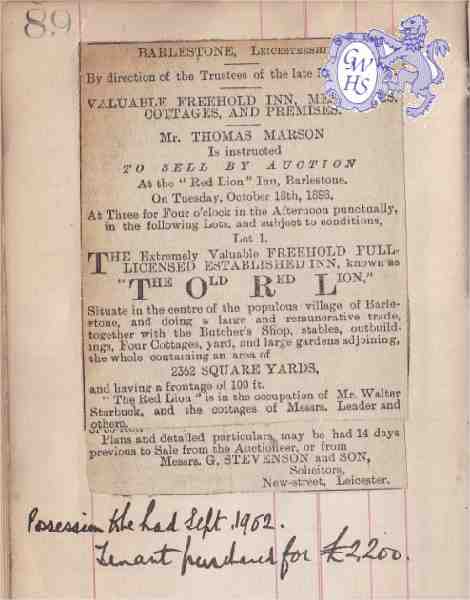 89
GWHS
BARLESTONE, LEICESTERSHI
By direction of the Trustees of the late
VALUABLE FREEHOLD INN, ME S,
COTTAGES, AND PREMISES.
Mr. THOMAS MARSON
Is instructed
TO SELL BY AUCTION
At the "Red Lion" Inn, Barlestone.
On Tuesday, October 18th,
At Three for Four o'clock in the Afternoon punctually,
in the following Lots, and subject to conditions,
Lot 1.
THE Extremely Valuable FREEHOLD FULL-
LICENSED ESTABLISHED INN, known as
"THE OLD RED LION,"
Situate in the centre of the populous village of Barle-
stone, and doing a large and remunerative trade,
together with the Butcher's Shop, stables, outbuild-
ings, Four Cottages, yard, and large gardens adjoining,
the whole containing an area of
2352 SQUARE YARDS,
and having a frontage of 100 ft.
"The Red Lion" is in the occupation of Mr. Walter
Starbuck, and the cottages of Messrs. Leader and
others.
Plans and detailed particulars may be had 14 days
previous to Sale from the Auctioneer, or from
Messrs. G. STEVENSON and SON,
Solicitors,
New-street, Leicester.
Possession to be had Sept. 1902.
Tenant purchased for £2,200.